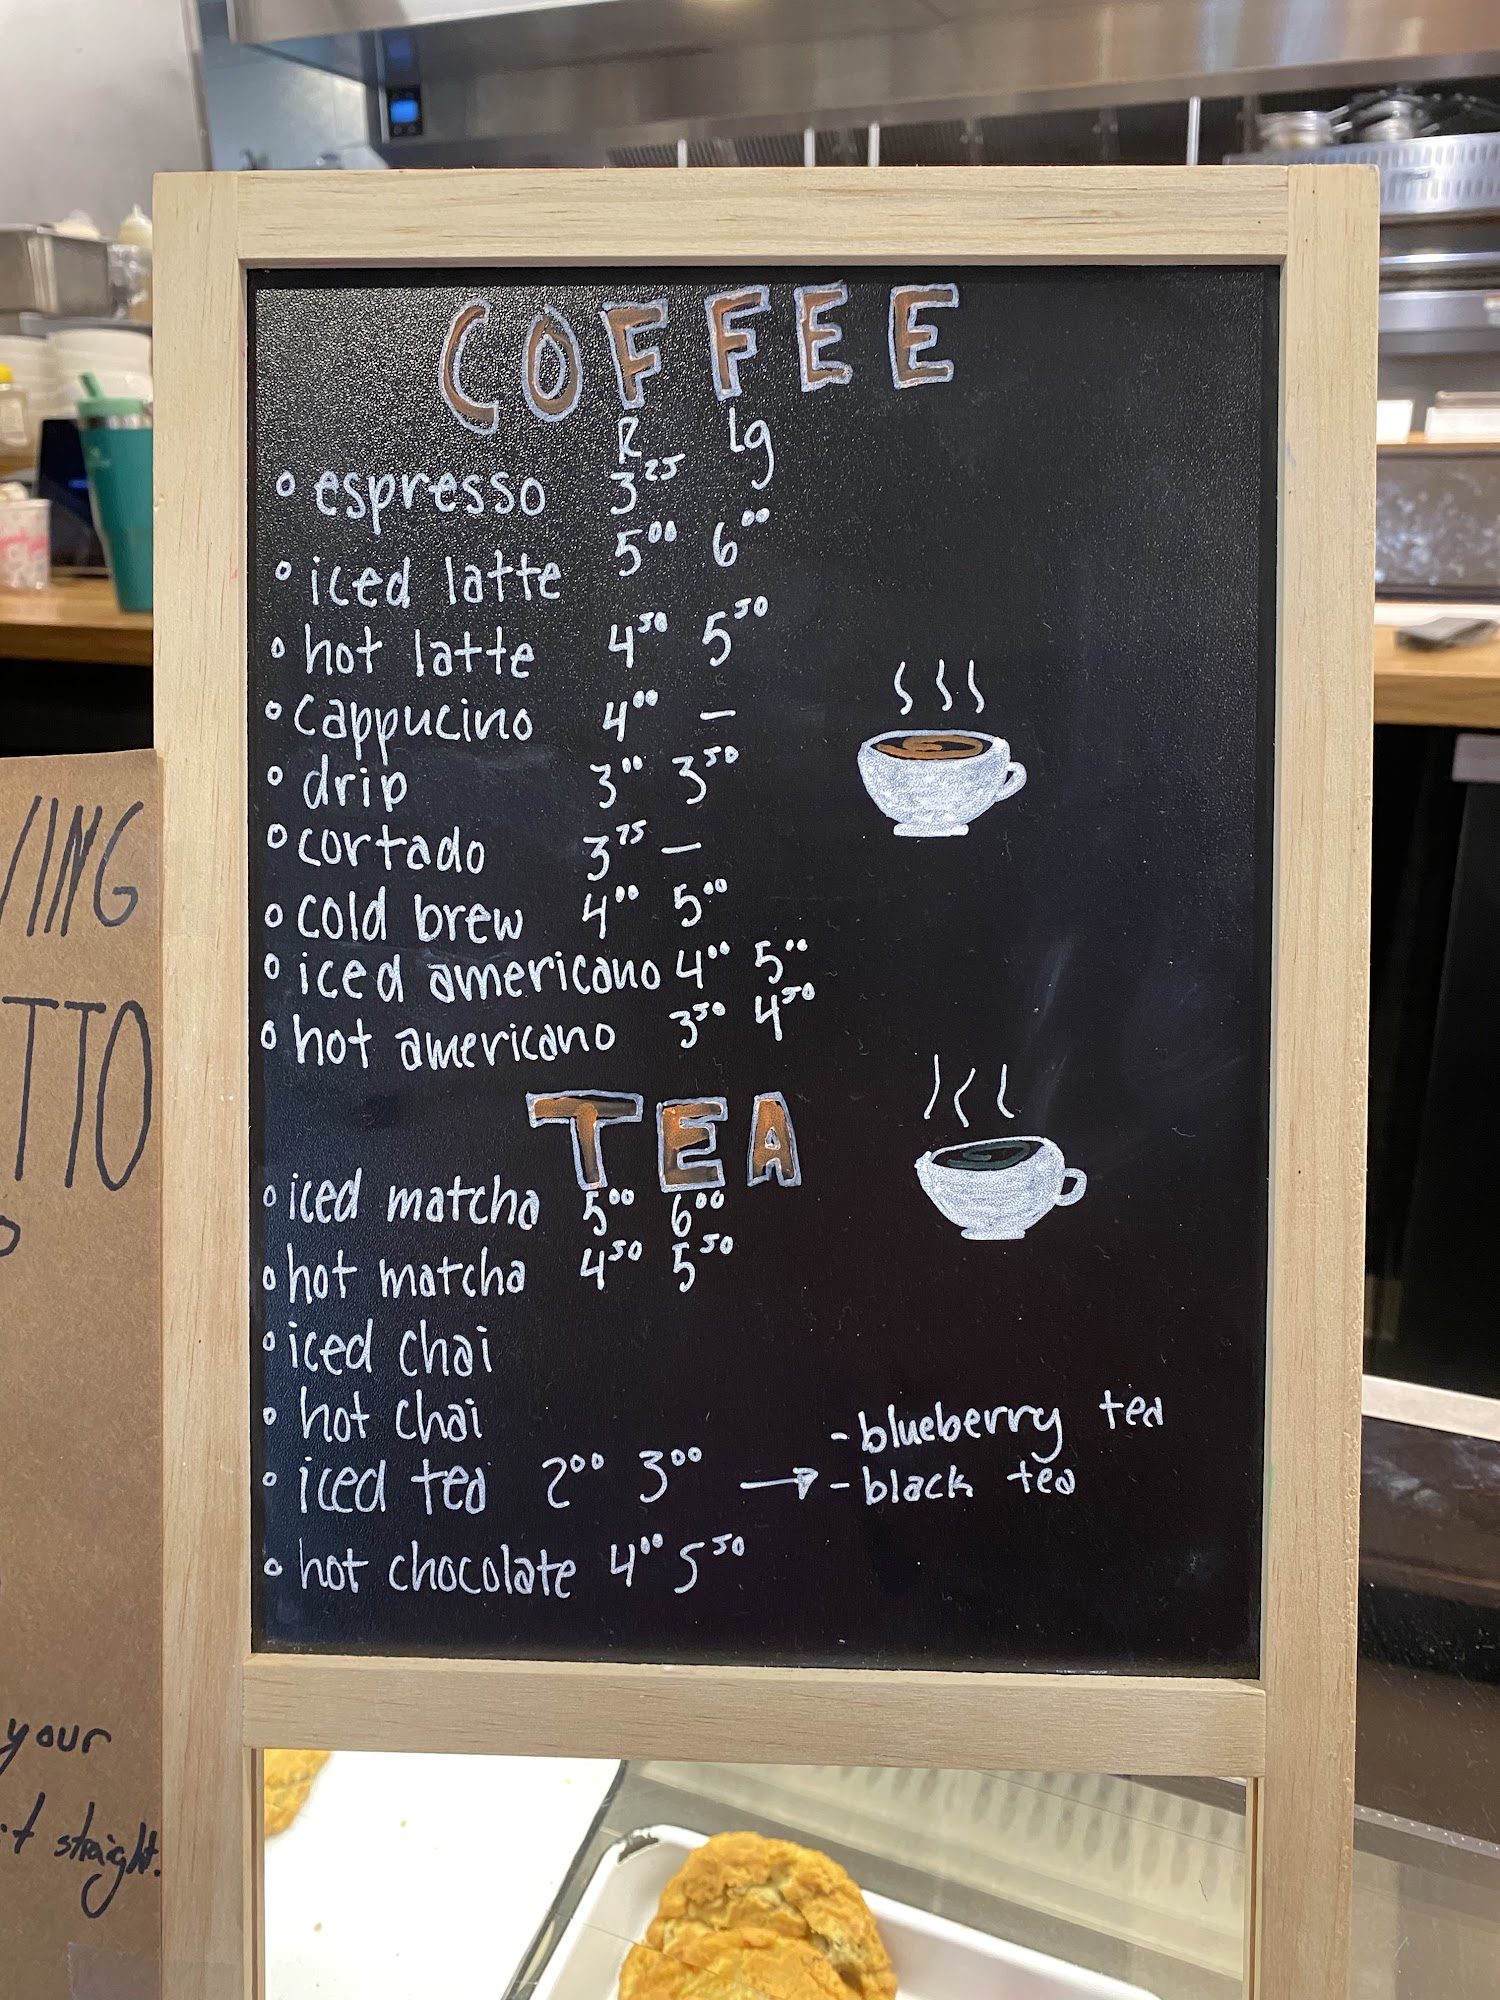 COFFEE
R lg
espresso 3.25
iced latte 5.00 6.00
hot latte 4.50 5.50
cappucino 4.00 —
drip 3.00 3.50
cortado 3.75 —
cold brew 4.00 5.00
iced americano 4.00 5.00
hot americano 3.50 4.50
TEA
iced matcha 5.00 6.00
hot matcha 4.50 5.50
iced chai
hot chai
iced tea 2.00 3.00 → - blueberry tea
- black tea
hot chocolate 4.00 5.50
ING
TTO
your
it straight.